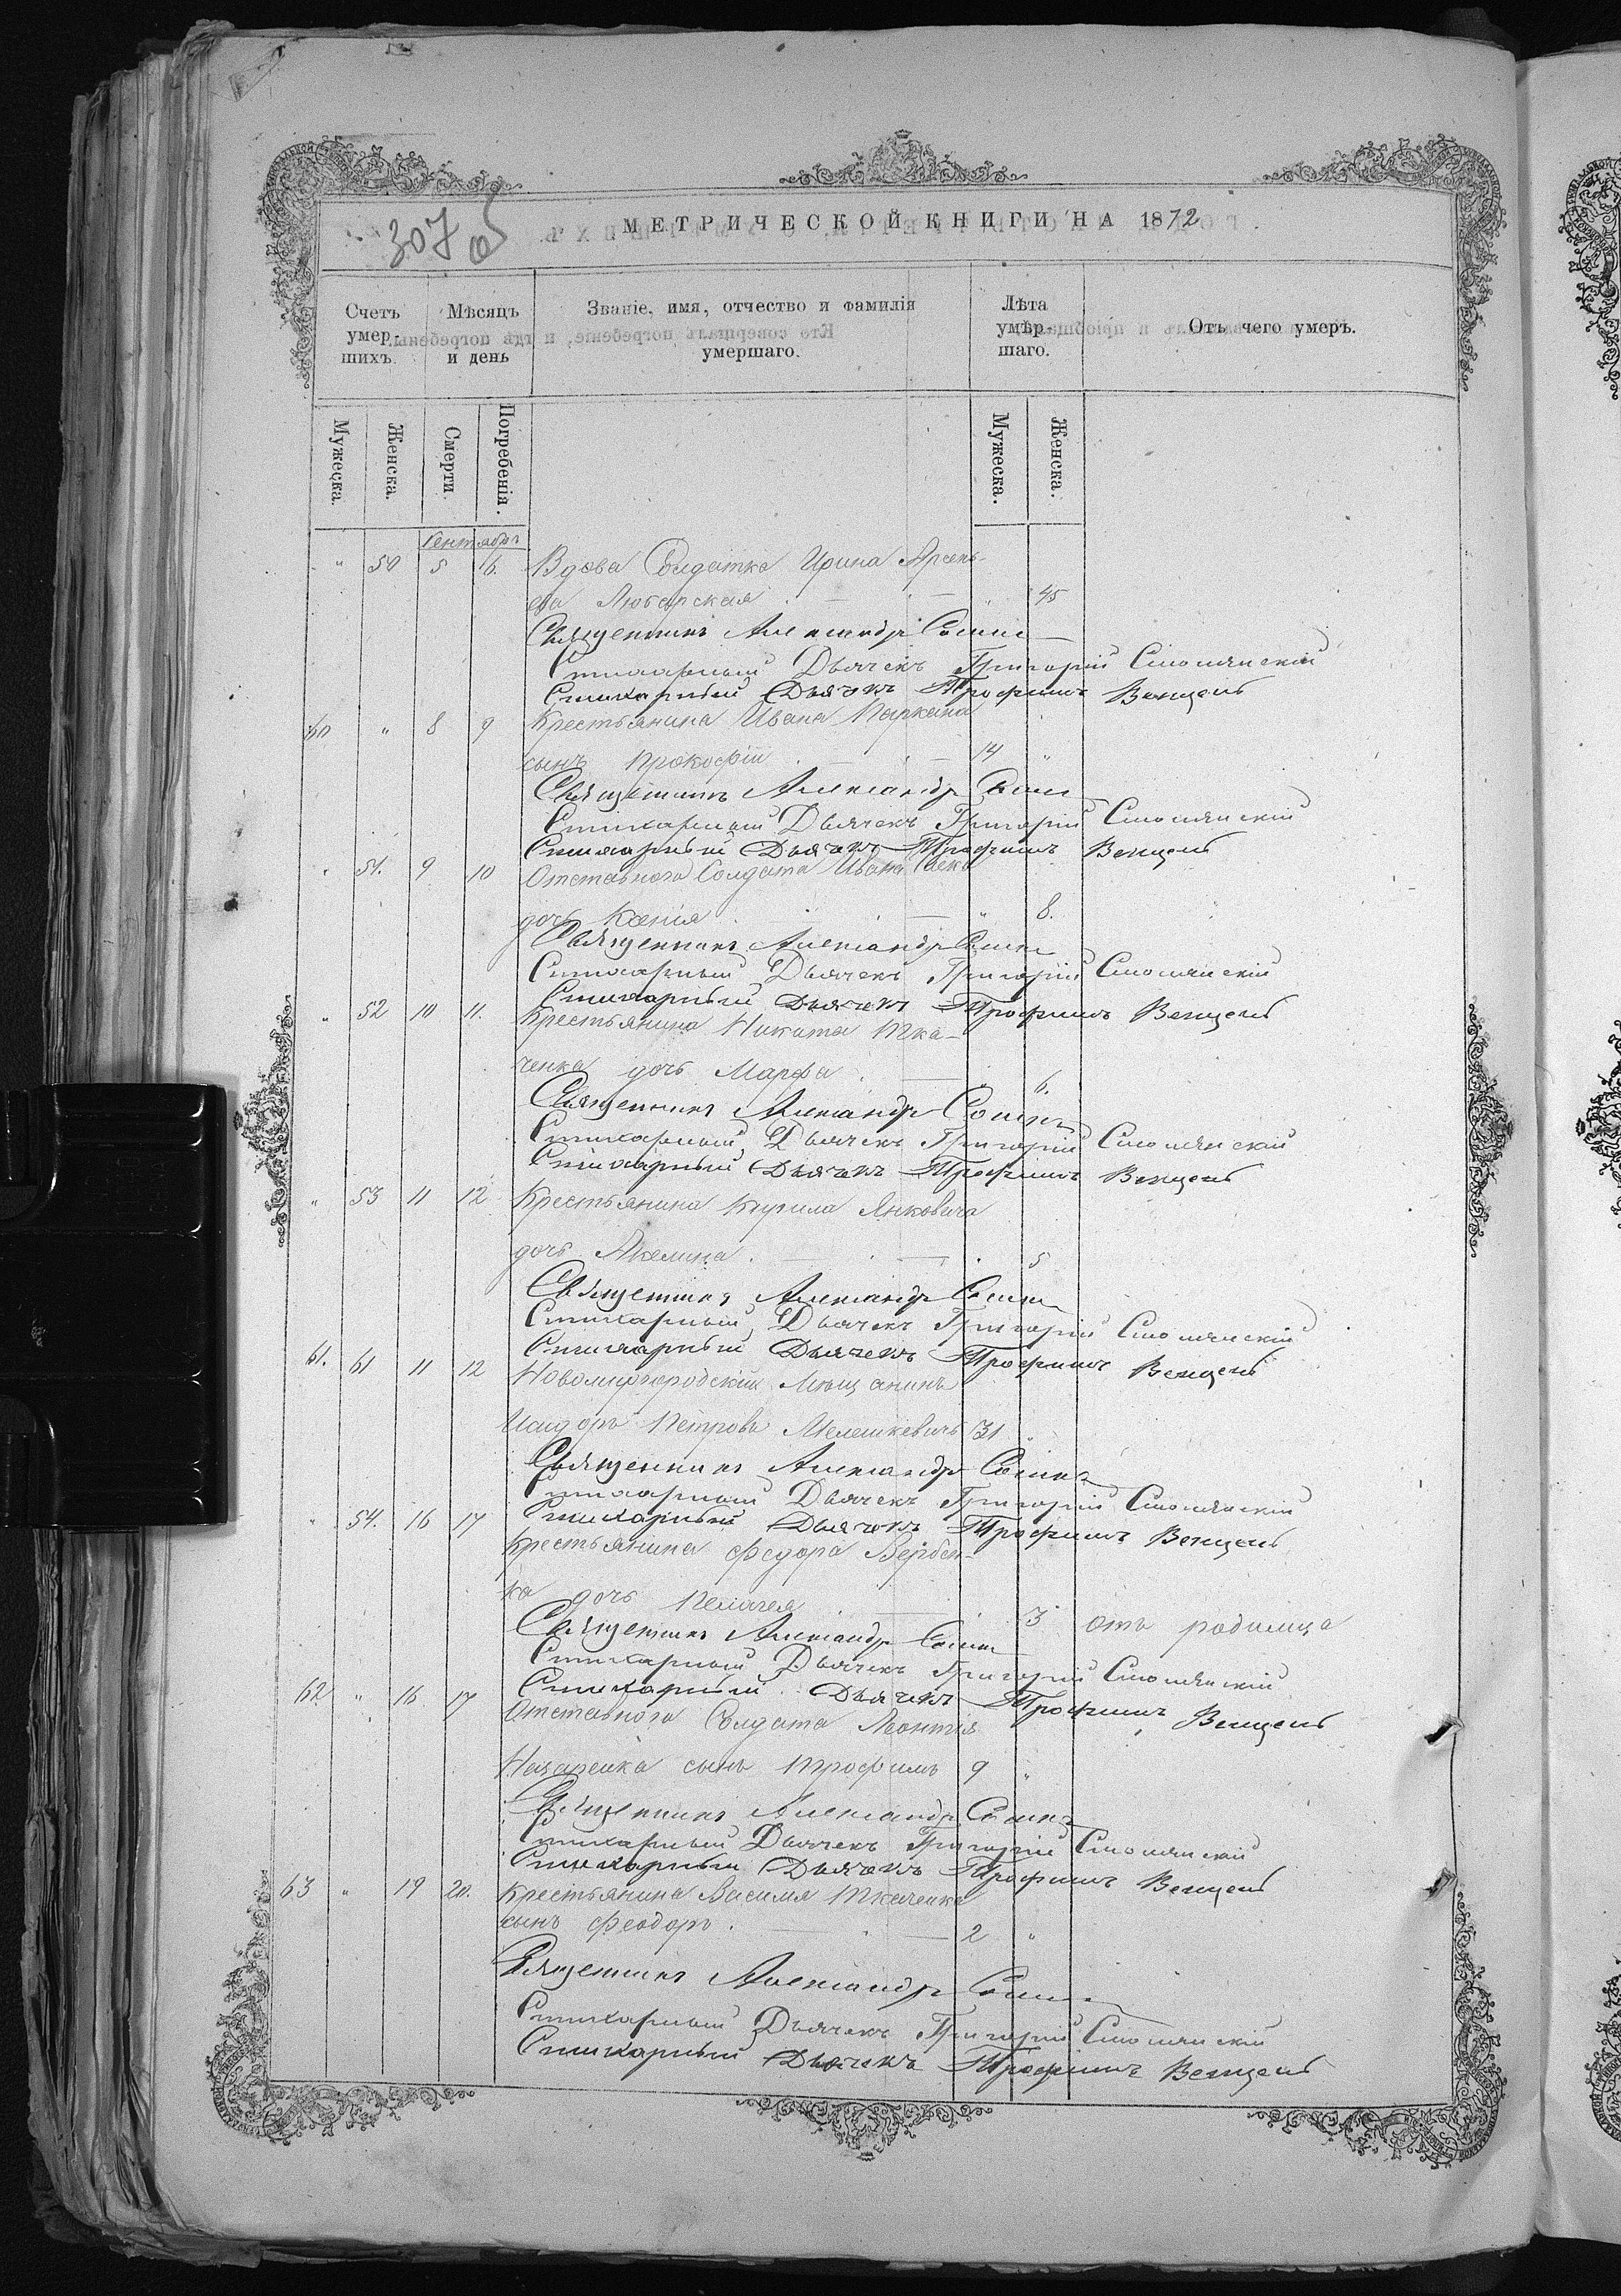 307 об
МЕТРИЧЕСКОЙ КНИГИ НА 1872
Счетъ умер шихъ.
Мѣсяцъ и день
Званіе, имя, отчество и фамилія умершаго.
Лѣта умер- шаго.
Отъ чего умеръ.
Мужеска. Женска. Смерти. Погребенія. Мужеска. Женска.
Сентябрь
" 50 5 6. Вдова Солдатка Ирина Арсень-
ева Любарская 45
Священникъ Александръ
Стихарный Дьячекъ Григорій Смолянскій
Стихарный Дьячекъ Трофимъ Венцень
60 " 8 9 Крестьянина Ивана
сынъ Прокофій 14 "
Священникъ Александръ
Стихарный Дьячекъ Григорій Смолянскій
Стихарный Дьячекъ Трофимъ Венцень
" 51. 9 10 Отставнаго Солдата Ивана
дочь Ксенія " 8.
Священникъ Александръ
Стихарный Дьячекъ Григорій Смолянскій
Стихарный Дьячекъ Трофимъ Венцень
" 52 10 11. Крестьянина Никиты Тка-
ченка дочь Марфа 6.
Священникъ Александръ
Стихарный Дьячекъ Григорій Смолянскій
Стихарный Дьячекъ Трофимъ Венцень
" 53 11 12 Крестьянина Кирила Янковича
дочь Акелина 5
Священникъ Александръ
Стихарный Дьячекъ Григорій Смолянскій
Стихарный Дьячекъ Трофимъ Венцень
61. 61 11 12 Новомиргородскій Мѣщанинъ
Исидоръ Петровъ Мелешкевичъ 31 "
Священникъ Александръ
Стихарный Дьячекъ Григорій Смолянскій
Стихарный Дьячекъ Трофимъ Венцень
" 54. 16 17 Крестьянина Федора Вербен-
ка дочь Пелагея 3 отъ родимца
Священникъ Александръ
Стихарный Дьячекъ Григорій Смолянскій
Стихарный Дьячекъ Трофимъ Венцень
62 " 16 17 Отставнаго Солдата Леонтія
Назаренка сынъ Трофимъ 9 "
Священникъ Александръ
Стихарный Дьячекъ Григорій Смолянскій
Стихарный Дьячекъ Трофимъ Венцень
63 " 19 20. Крестьянина Василія Ткаченка
сынъ Феодоръ 2 "
Священникъ Александръ
Стихарный Дьячекъ Григорій Смолянскій
Стихарный Дьячекъ Трофимъ Венцень